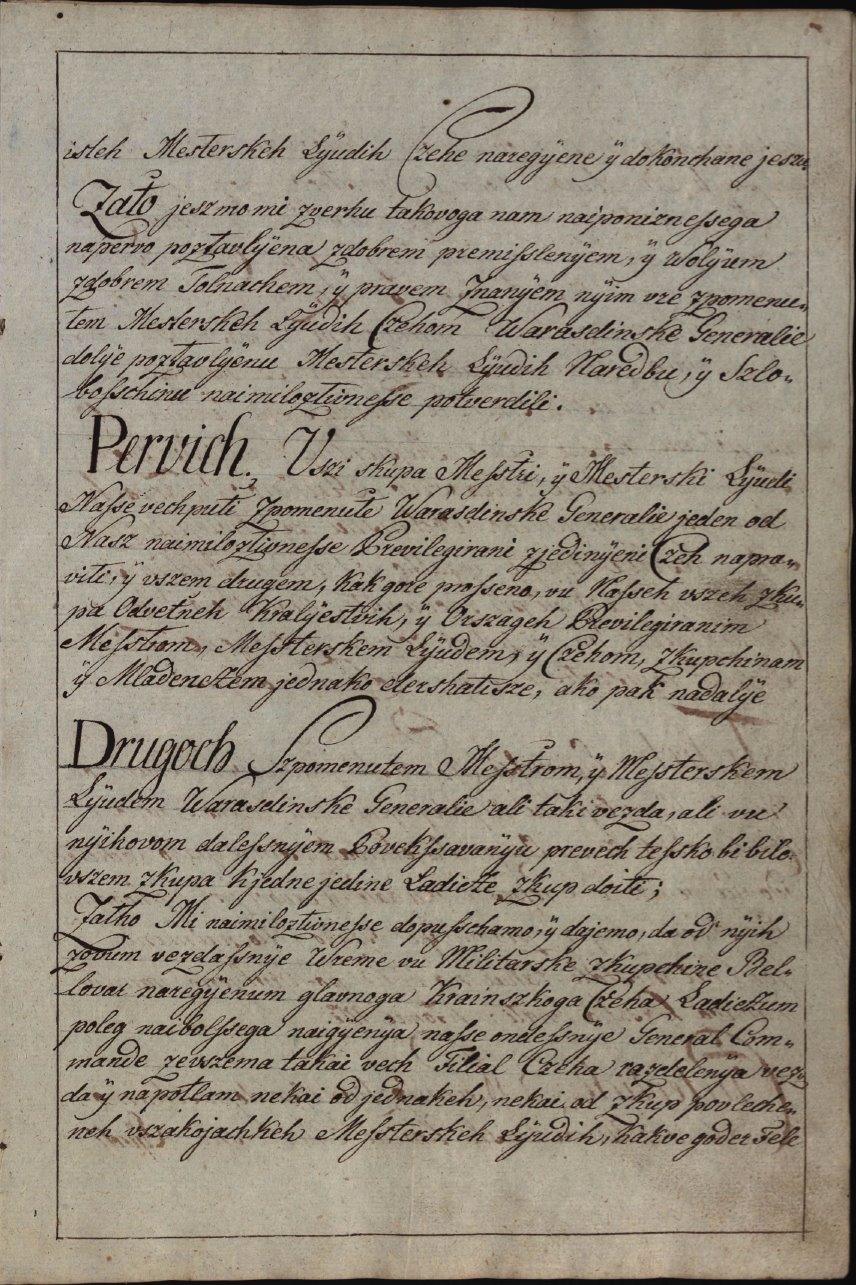 isteh Mesterskeh Lÿudih Czehe naregÿene ÿ dokonchane jeszu.
Zato jeszmo mi zverhu takovoga nam naiponiznessega
napervo poztavlÿena zdobrem premisslenÿem, ÿ Wolÿum
zdobrem Tolnachem, ÿ pravem Znanÿem nÿim vre zpomenu„
tem Mesterskeh Lÿudih Czehom Warasdinske Generalie
dolÿe poztavlÿenu Mesterskeh Lÿudih Naredbu, ÿ Szlo„
bosschinu naimiloztivnesse potverdili.
Pervich. Vszi skupa Messtri, ÿ Mesterski Lÿudi
Nasse vechputi zpomenute Warasdinske Generalie jeden od
Nasz naimiloztivnesse Previlegirani zjedinÿeni Czeh napra„
viti, ÿ vszem drugem, kak gore prosseno, vu Nasseh vszeh zku„
pa Odvetneh Kralÿestvih, ÿ Orszageh Previlegiranim
Messtrom, Messterskem Lÿudem, ÿ Czehom, Zkupchinam
ÿ Mladenczem jednako dershatisze, ako pak nadalÿe
Drugoch Szpomenutem Messtrom, ÿ Messterskem
Lÿudem Warasdinske Generalie ali taki vezda, ali vu
nÿihovom dalessnÿem Povekssavanÿu prevech tessko bi bilo
vszem zkupa kjedne jedine Ladicze zkup doiti;
Zatho Mi naimiloztivnesse dopusschamo, ÿ dajemo, da od nÿih
zovum vezdassnÿe Wreme vu Militarske Zkupchine Bel„
lovar naregÿenum glavnoga Krainszkoga Czeha Ladiczum
poleg naibolssega naigyenÿa nasse ondessnÿe General Com„
mande zevszema takai vech Filial Czeha razdelenÿa vez„
da ÿ napotlam nekai od jednakeh, nekai od zkup povleche„
neh vszakojachkeh Messterskeh Lÿudih, kakve goder Fele